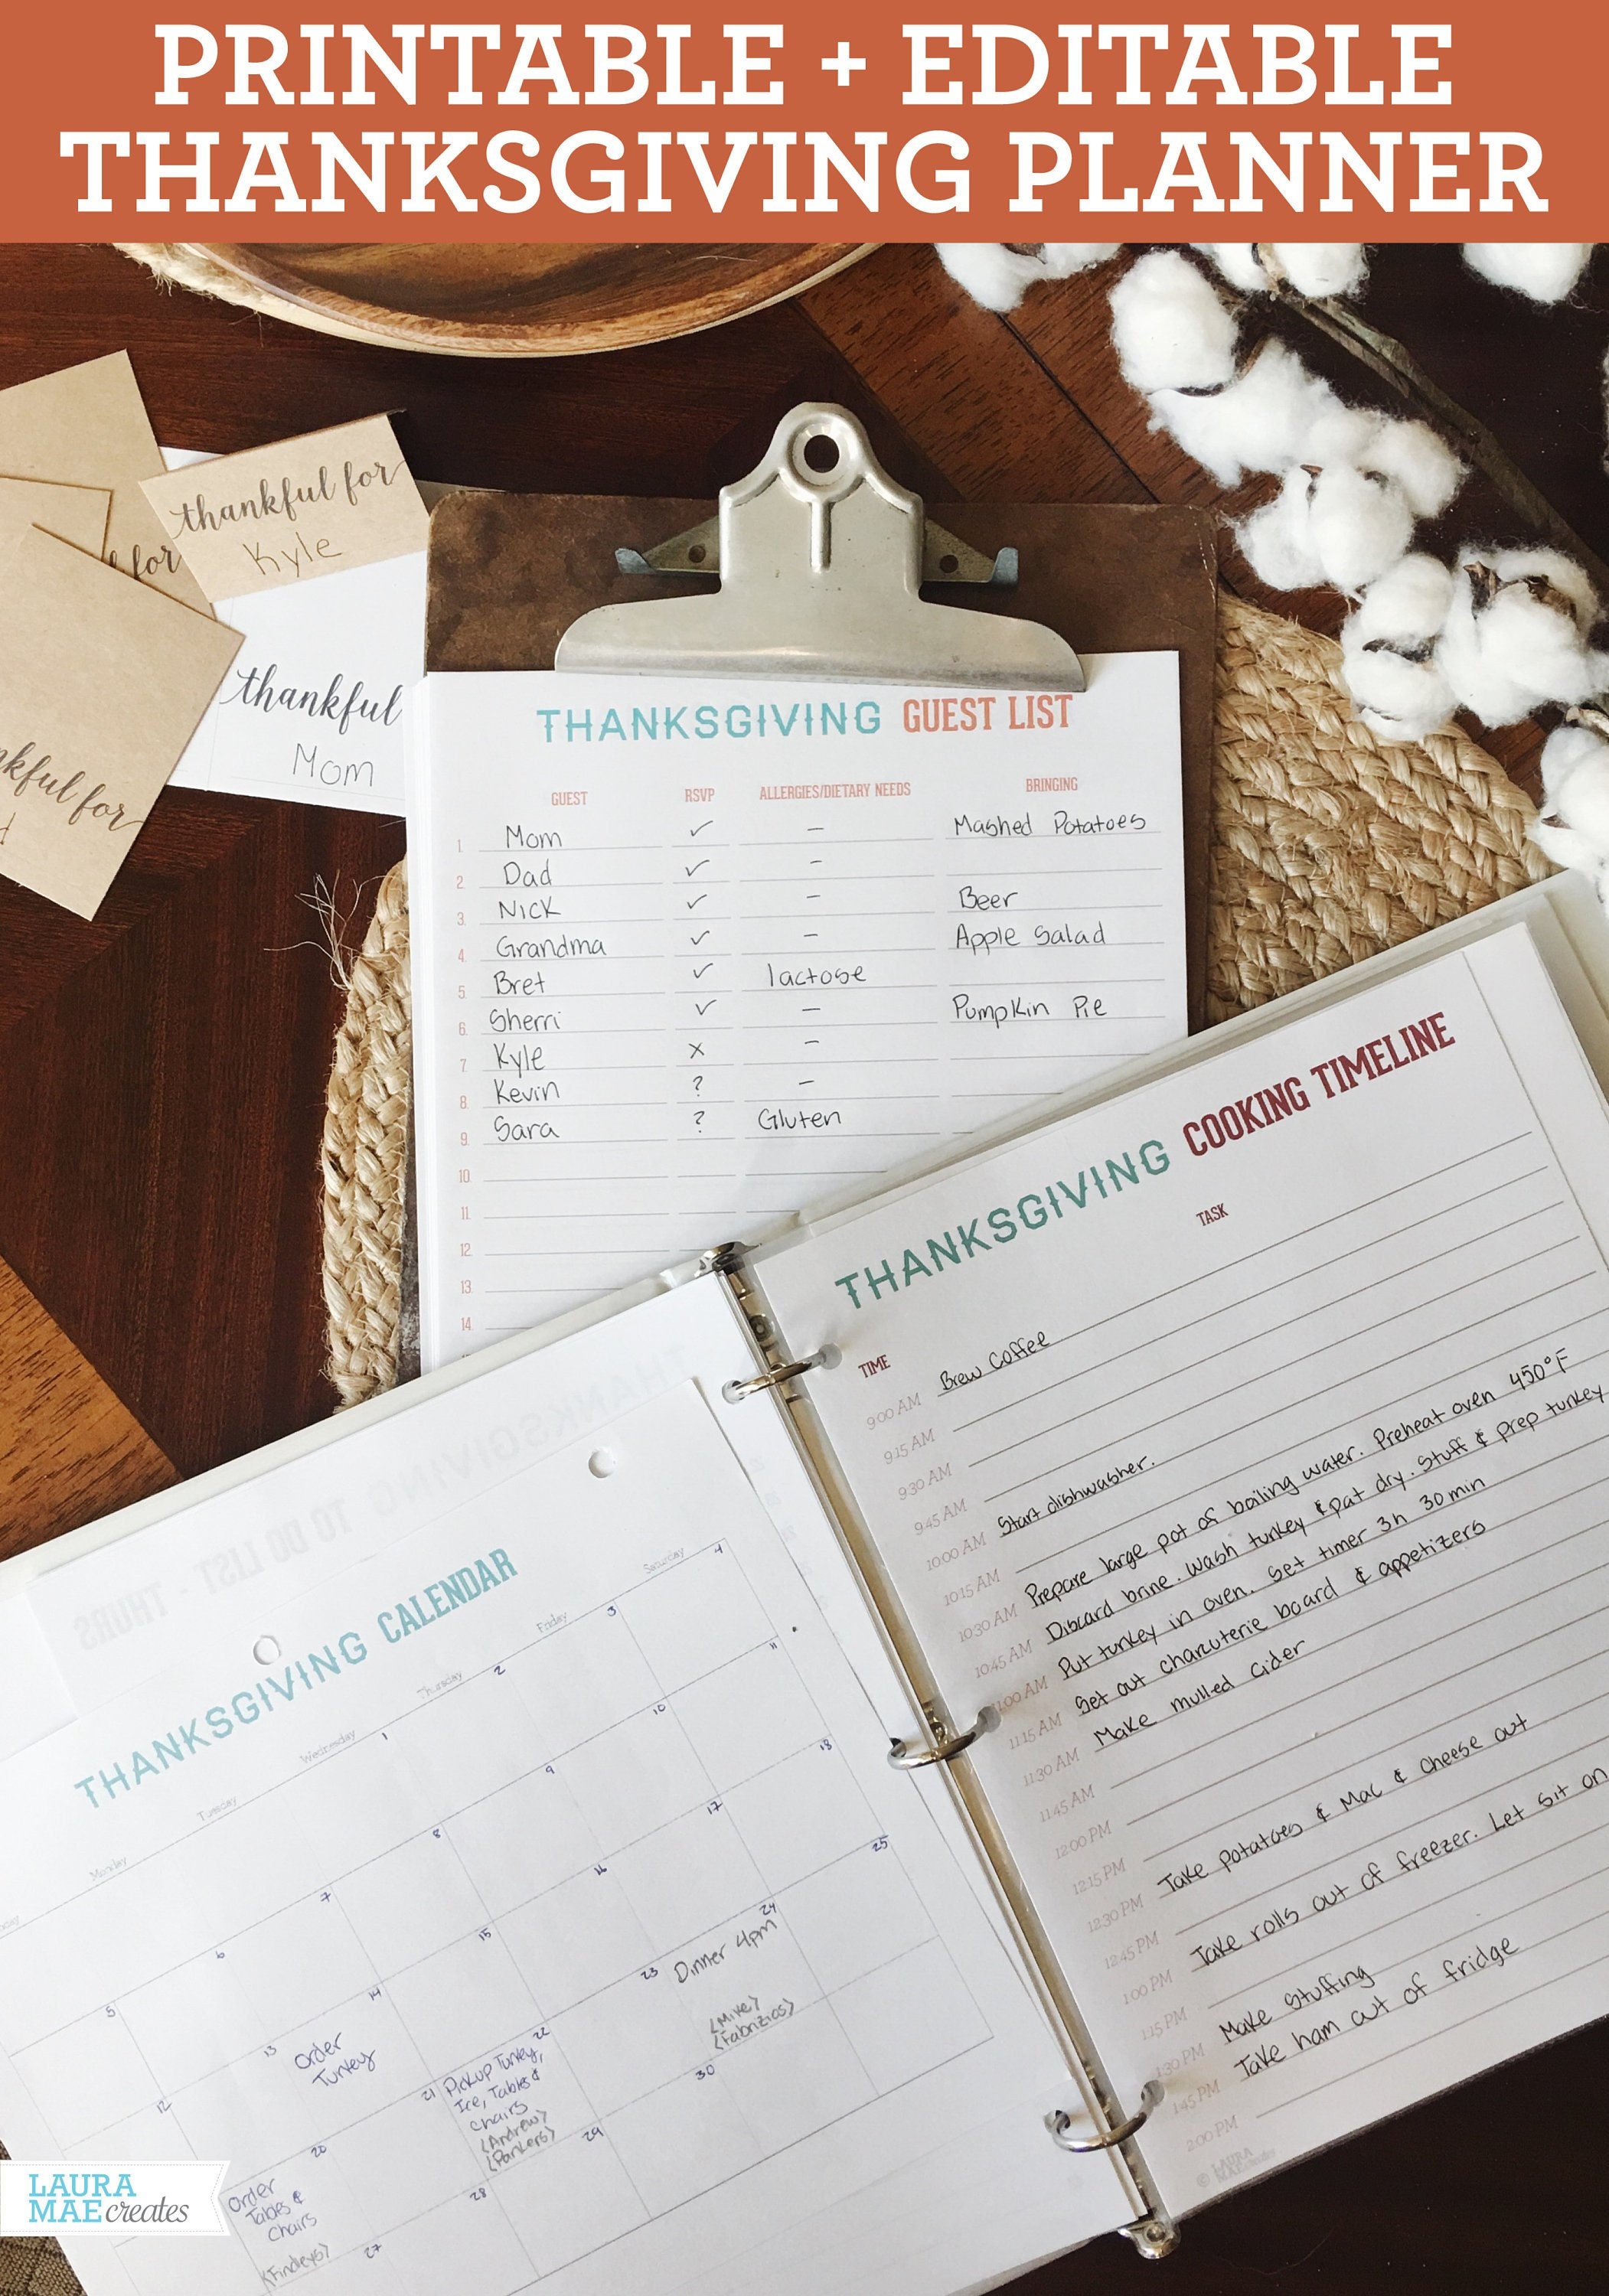 PRINTABLE + EDITABLE
THANKSGIVING PLANNER
thankful for
Kyle
for
thankful
Mom
kful for
THANKSGIVING GUEST LIST
GUEST RSVP ALLERGIES/DIETARY NEEDS BRINGING
1. Mom ✓ – Mashed Potatoes
2. Dad ✓ –
3. Nick ✓ – Beer
4. Grandma ✓ – Apple Salad
5. Bret ✓ lactose
6. Sherri ✓ – Pumpkin Pie
7. Kyle x –
8. Kevin ? –
9. Sara ? Gluten
10.
11.
12.
13.
14.
THANKSGIVING COOKING TIMELINE
TIME TASK
9:00 AM Brew Coffee
9:15 AM
9:30 AM
9:45 AM
10:00 AM Start dishwasher.
10:15 AM
10:30 AM Prepare large pot of boiling water. Preheat oven 450°F
10:45 AM Discard brine. Wash turkey & pat dry. Stuff & prep turkey
11:00 AM Put turkey in oven. Set timer 3h 30min
11:15 AM Set out charcuterie board & appetizers
11:30 AM Make mulled cider
11:45 AM
12:00 PM
12:15 PM
12:30 PM Take potatoes & Mac & Cheese out
12:45 PM
1:00 PM Take rolls out of freezer. Let sit on
1:15 PM
1:30 PM Make stuffing
1:45 PM Take ham out of fridge
2:00 PM
© LAURA
MAE creates
THANKSGIVING TO DO LIST - THURS
THANKSGIVING CALENDAR
Monday Tuesday Wednesday Thursday Friday Saturday
1 2 3 4
5 6 7 8 9 10 11
12 13 14 15 16 17 18
Order
Turkey
20 21 22 23 24 25
Order
Tables &
Chairs
(Findleys)
Pickup Turkey,
Ice, Tables &
Chairs
(Andrew)
(Parkers)
Dinner 4pm
(Mike)
(Fabrizios)
27 28 29 30
LAURA
MAE creates